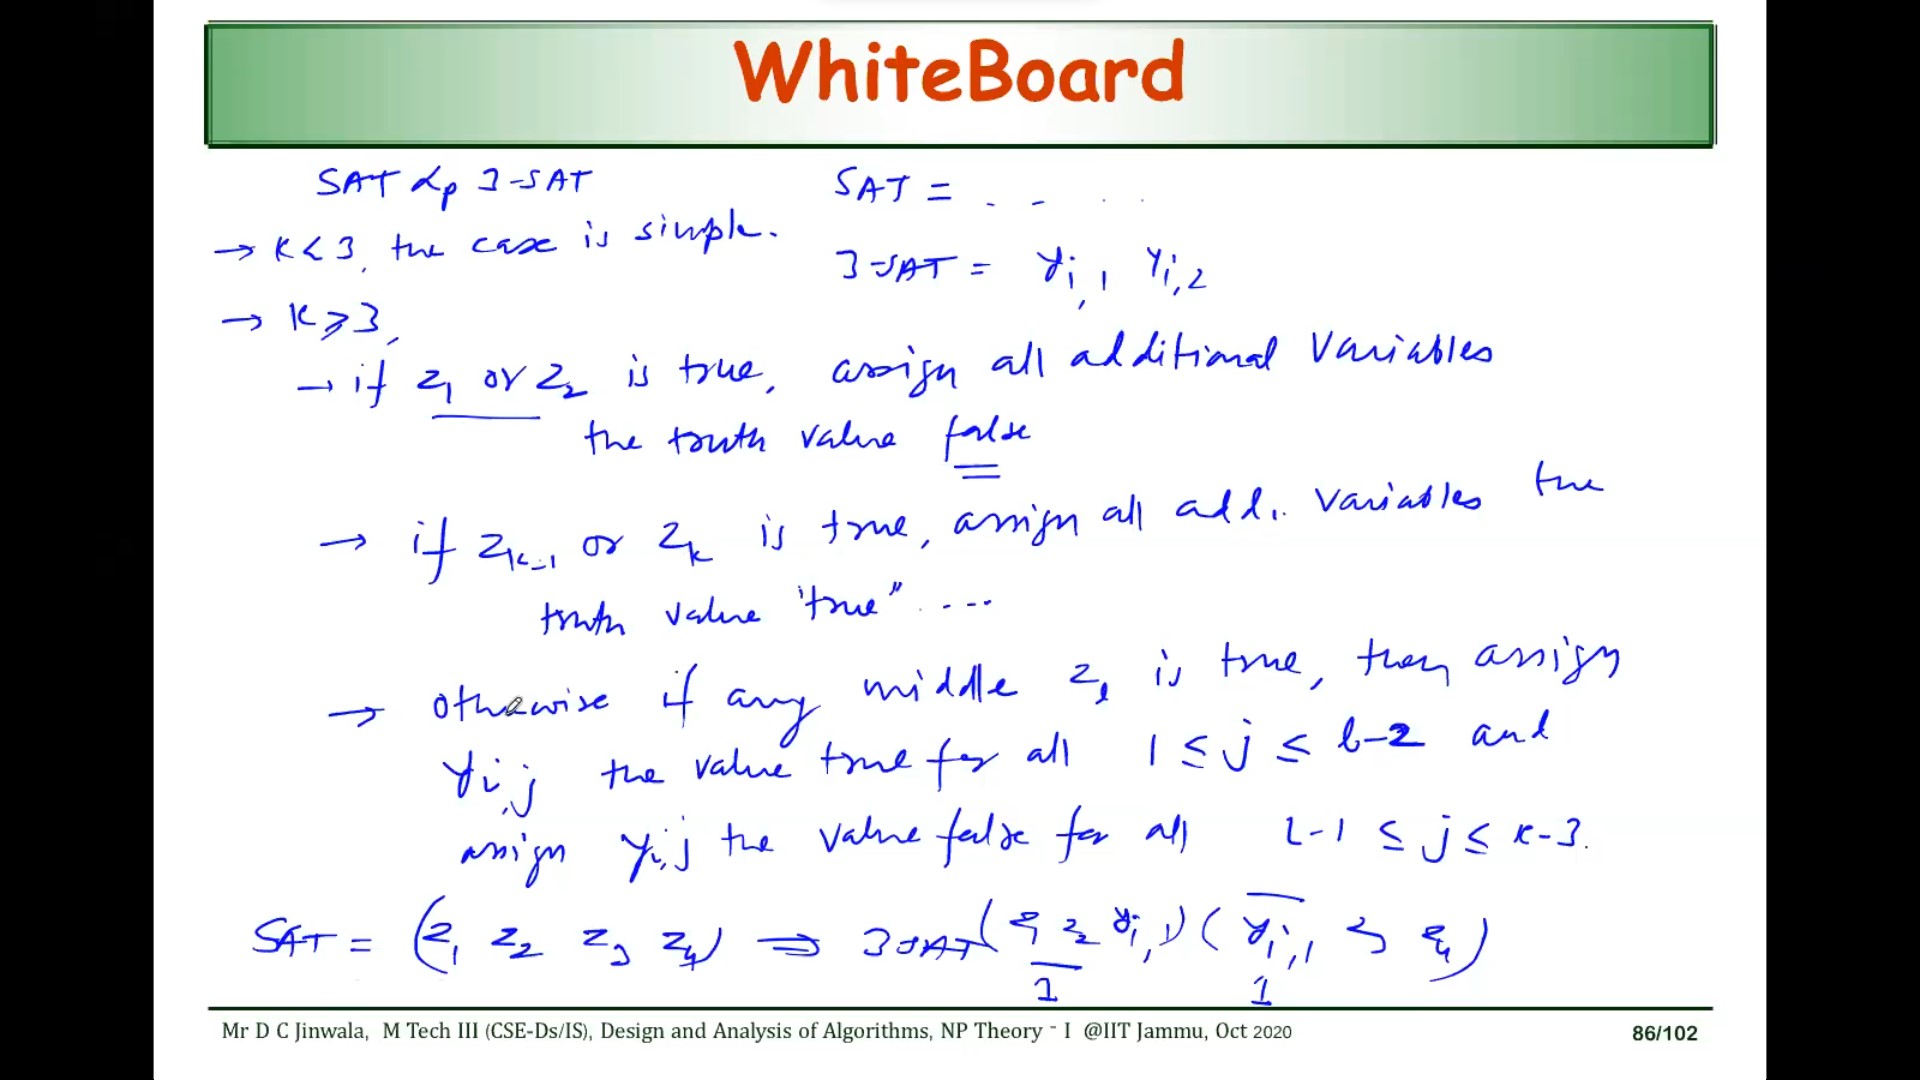 WhiteBoard
SAT ∝p 3-SAT
SAT = . - . .
→ K<3, the case is simple.
3-SAT = Yi,1 Yi,2
→ K ≥ 3,
→ if z1 or z2 is true, assign all additional variables
the truth value false
→ if zk-1 or zk is true, assign all add. variables the
truth value "true" ....
→ otherwise if any middle zl is true, then assign
Yi,j the value true for all 1 ≤ j ≤ l-2 and
assign Yi,j the value false for all l-1 ≤ j ≤ k-3.
SAT = (z1 z2 z3 z4) ⇒ 3SAT (z1 z2 yi,1) (y̅i,1 z3 z4)
1 1
Mr D C Jinwala, M Tech III (CSE-Ds/IS), Design and Analysis of Algorithms, NP Theory - I @IIT Jammu, Oct 2020
86/102